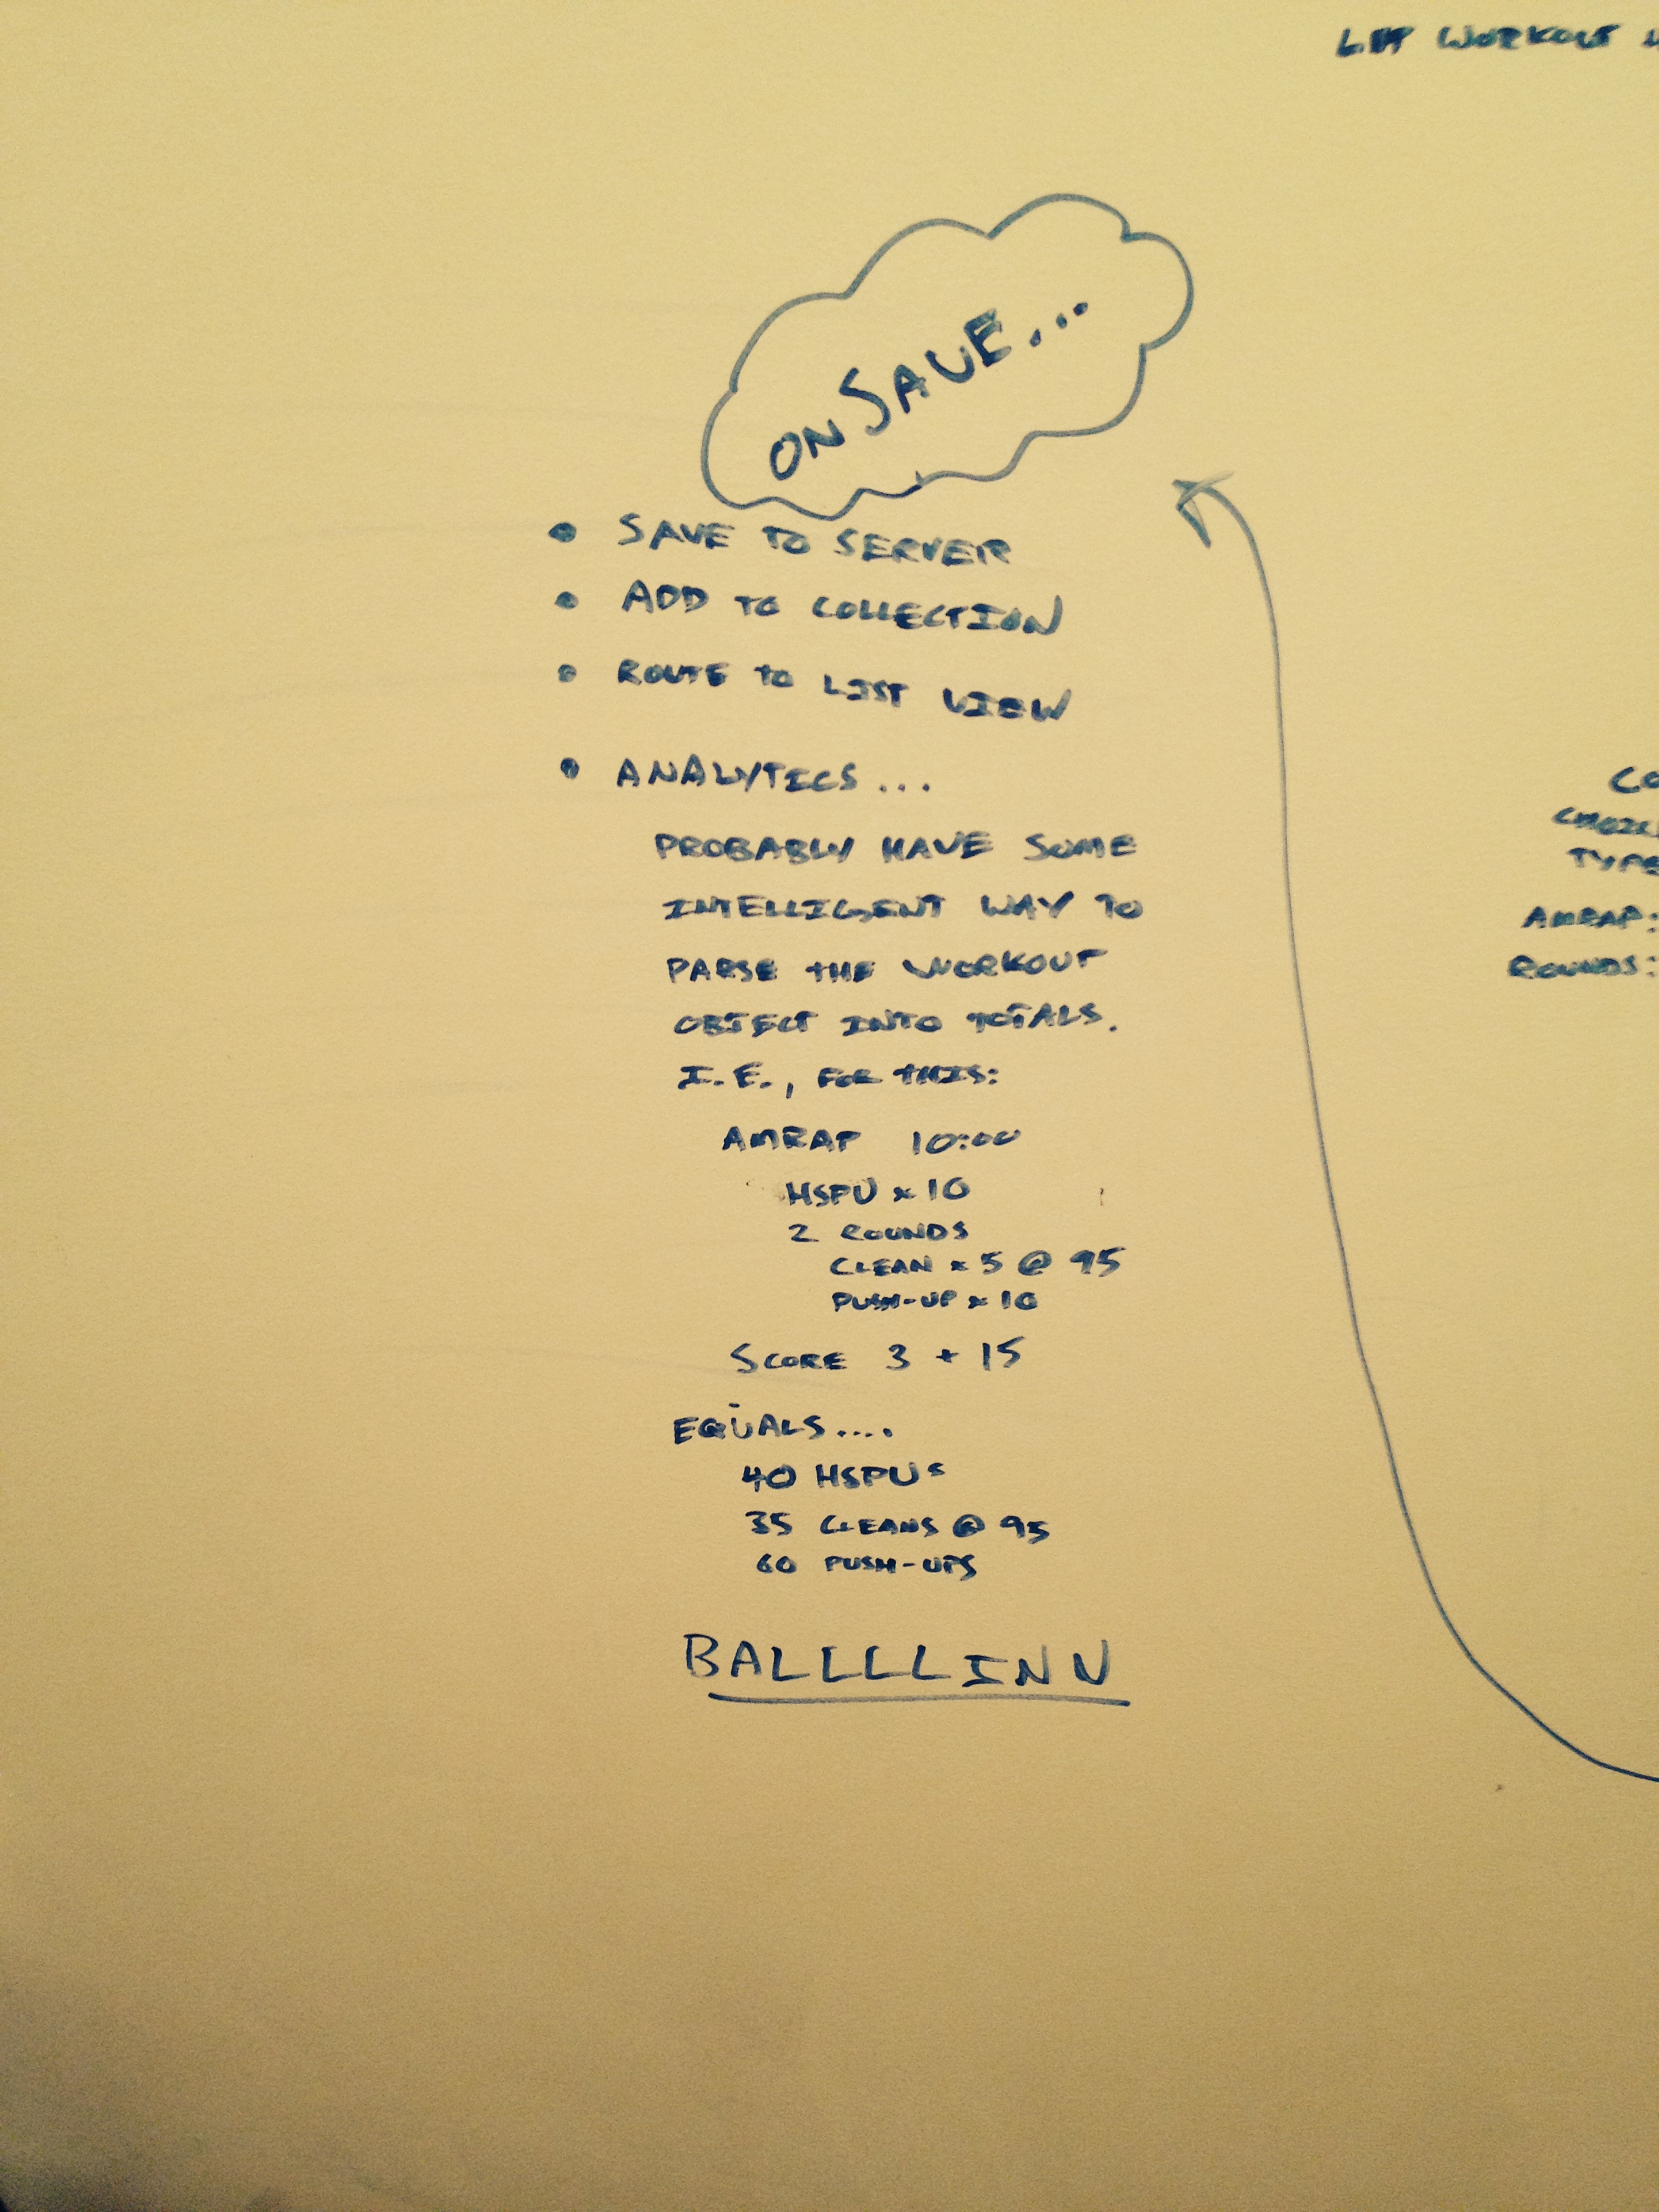 WORKOUT
ON SAVE...
• SAVE TO SERVER
• ADD TO COLLECTION
• ROUTE TO LIST VIEW
• ANALYTICS...
PROBABLY HAVE SOME
INTELLIGENT WAY TO
PARSE THE WORKOUT
OBJECT INTO TOTALS.
I.E., FOR THIS:
AMRAP 10:00
HSPU x 10
2 ROUNDS
CLEAN x 5 @ 95
PUSH-UP x 10
SCORE 3 + 15
EQUALS....
40 HSPUs
35 CLEANS @ 95
60 PUSH-UPS
BALLLLINU
CO
TYPE
AMRAP:
ROUNDS: